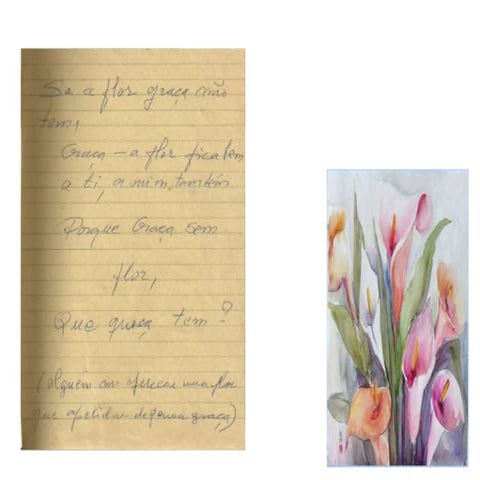 Se a flor graça não
tem,
Graça – a flor fica bem
a ti, a mim, também
Porque Graça sem
flor,
Que graça tem?
(alguém me oferece uma flor
que